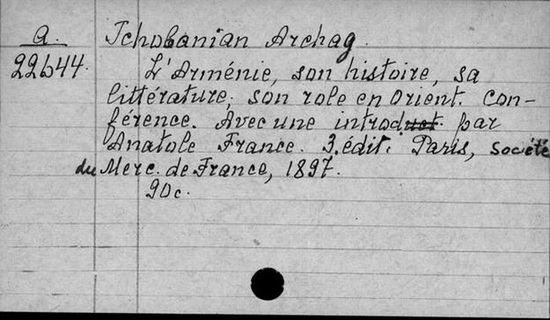 a. Tchobanian Archag.
22644. L'Arménie, son histoire, sa
littérature; son role en Orient. Con-
férence. Avec une introduct. par
Anatole France. 3. édit. Paris, Société
du Merc. de France, 1897.
90c.